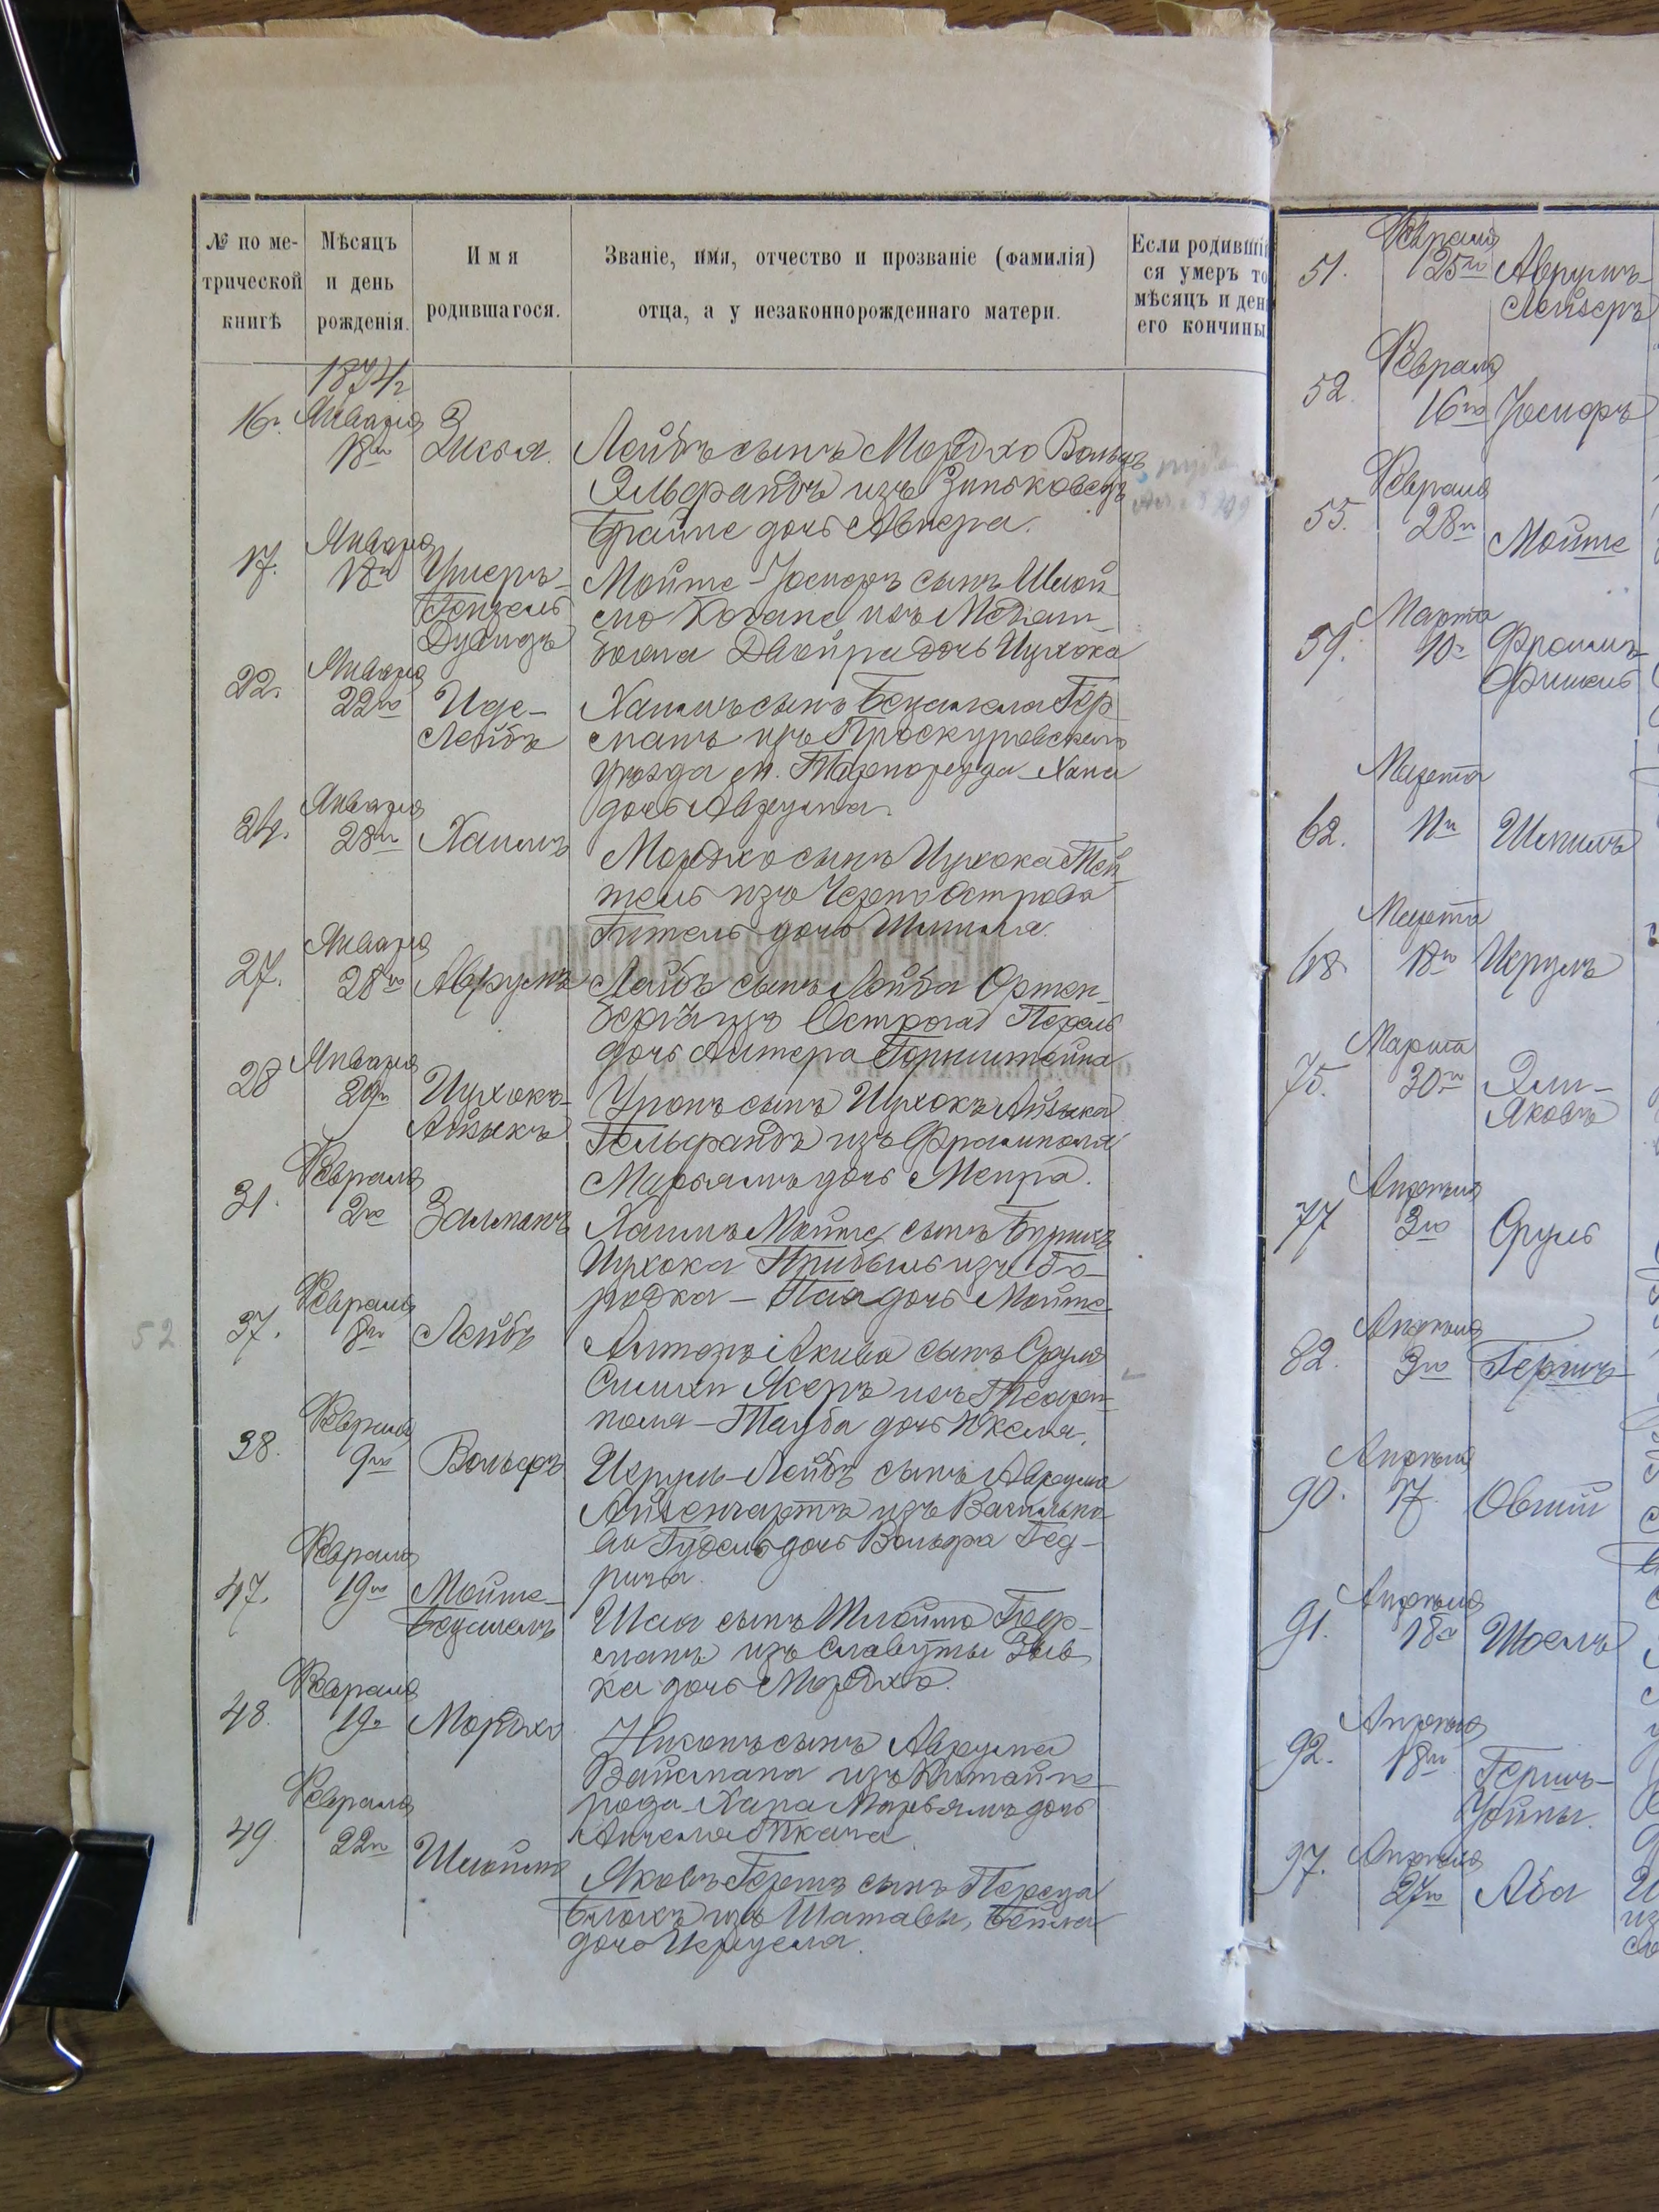 № по ме-
трической
книгѣ
Мѣсяцъ
и день
рожденія.
Имя
родившагося.
Званіе, имя, отчество и прозваніе (фамилія)
отца, а у незаконнорожденнаго матери.
Если родивші
ся умеръ то
мѣсяцъ и ден
его кончины
1874г
16. Января
18го Зисья. Лейбъ сынъ Мордко Вольфъ
Эльфандъ изъ Зиньковецъ
Брайне дочь Авнера.
17. Января
18го Ушеръ- Мойше-Іосифъ сынъ Шлой
Бенцель мо Когане изъ Меджи
Дувидъ божа Двойра дочь Ицхока
22. Января
22го Иде- Хаимъ сынъ Бецалела Гер
Лейбъ манъ изъ Проскуровскаго
уѣзда м. Тарноруда Хана
дочь Аврума.
24. Января
28го Хаимъ Мордко сынъ Ицхока Тей
тель изъ Черно Острова
Гитель дочь Шмила.
27. Января
28го Аврумъ Лейбъ сынъ Лейба Ортен-
бергъ изъ Острога Перель
дочь Алтера Горнштейна
28 Января
29го Ицхокъ- Уронъ сынъ Ицхокъ Айзыка
Айзыкъ Гельфандъ изъ Фрамполя
Марьямъ дочь Меира.
31. Февраля
2го Залманъ Хаимъ Мойше сынъ Бурихъ
Ицхока Прибыль изъ Го-
родка - Пая дочь Мойше
52
37. Февраля
8го Лейбъ Алтеръ Акива сынъ Сруля
Симхи Якеръ изъ Теофи
поля - Тауба дочь Юкеля.
38. Февраля
9го Вольфъ Исруль-Лейбъ сынъ Аврума
Айзенгартъ изъ Василько
ва Гудель дочь Вольфа Гед-
рича.
47. Февраля
19го Мойше- Шая сынъ Шлоймо Гоор-
Бецалель манъ изъ Славуты Зыв
ка дочь Мордко.
48. Февраля
19го Мордко Нисонъ сынъ Аврума
Вайсмана изъ Китайго
рода Хара Марьямъ дочь
Анчеля Ткача
49 Февраля
22го Шлоймо Яковъ Гершъ сынъ Переца
Блокъ изъ Шатавы, Бейла
дочь Исруеля.
51. Февраля
25го Аврумъ-
Лейзеръ
52. Февраля
16го Іосифъ
55. Февраля
28го Мойше
59. Марта
10го Фроимъ
Фишель
62. Марта
11го Шмилъ
68 Марта
18го Исрулъ
75. Марта
30го Эли-
Яковъ
77 Апрѣля
3го Сруль
82. Апрѣля
3го Гершъ-
90. Апрѣля
17. Овший
91. Апрѣля
18го Шоелъ
92. Апрѣля
18го Гершъ-
Уойны.
97. Апрѣля
27го Аба